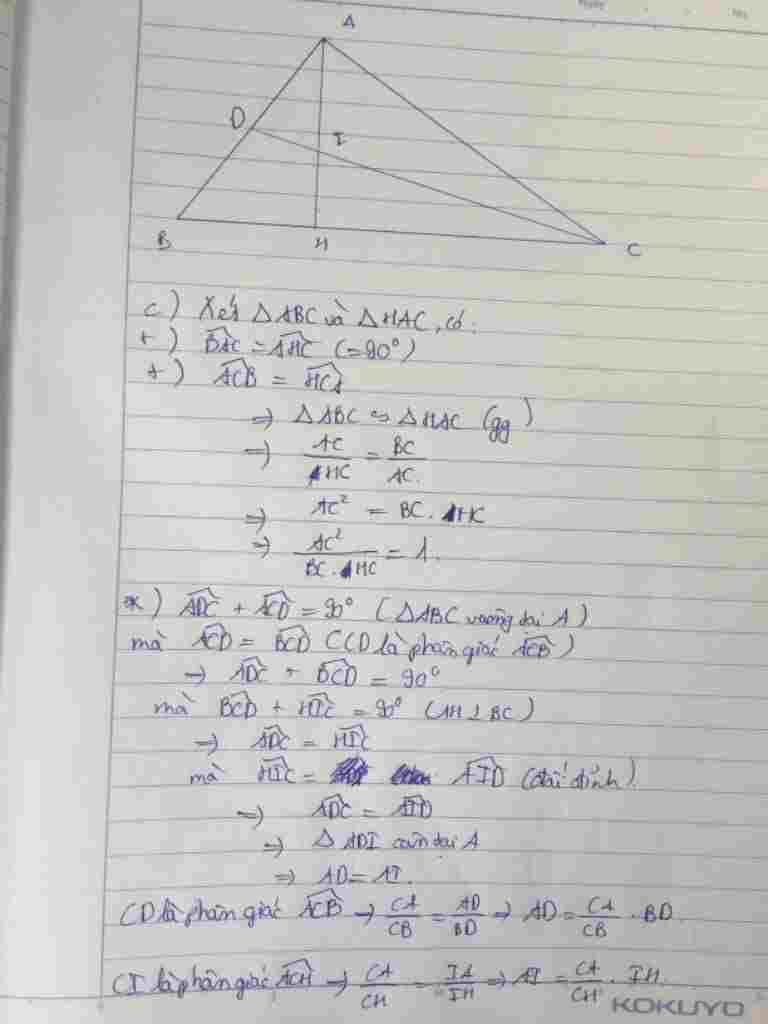 A
D
I
B
H
C
c) Xét △ABC và △HAC, có:
+) \widehat{BAC} = \widehat{AHC} (=90°)
+) \widehat{ACB} = \widehat{HCA}
=> △ABC ∽ △HAC (gg)
=> \frac{AC}{HC} = \frac{BC}{AC}.
=> AC² = BC.HC
=> \frac{AC²}{BC.HC} = 1.
*) \widehat{ADC} + \widehat{ACD} = 90° (△ABC vuông tại A)
mà \widehat{ACD} = \widehat{BCD} (CD là phân giác \widehat{ACB})
=> \widehat{ADC} + \widehat{BCD} = 90°
mà \widehat{BCD} + \widehat{HIC} = 90° (AH ⊥ BC)
=> \widehat{ADC} = \widehat{HIC}
mà \widehat{HIC} = \widehat{AID} (đối đỉnh)
=> \widehat{ADC} = \widehat{AID}
=> △ADI cân tại A
=> AD = AI.
CD là phân giác \widehat{ACB} → \frac{CA}{CB} = \frac{AD}{BD} → AD = \frac{CA}{CB} . BD
CI là phân giác \widehat{ACH} → \frac{CA}{CH} = \frac{IA}{IH} => AI = \frac{CA}{CH} . IH.
KOKUYO